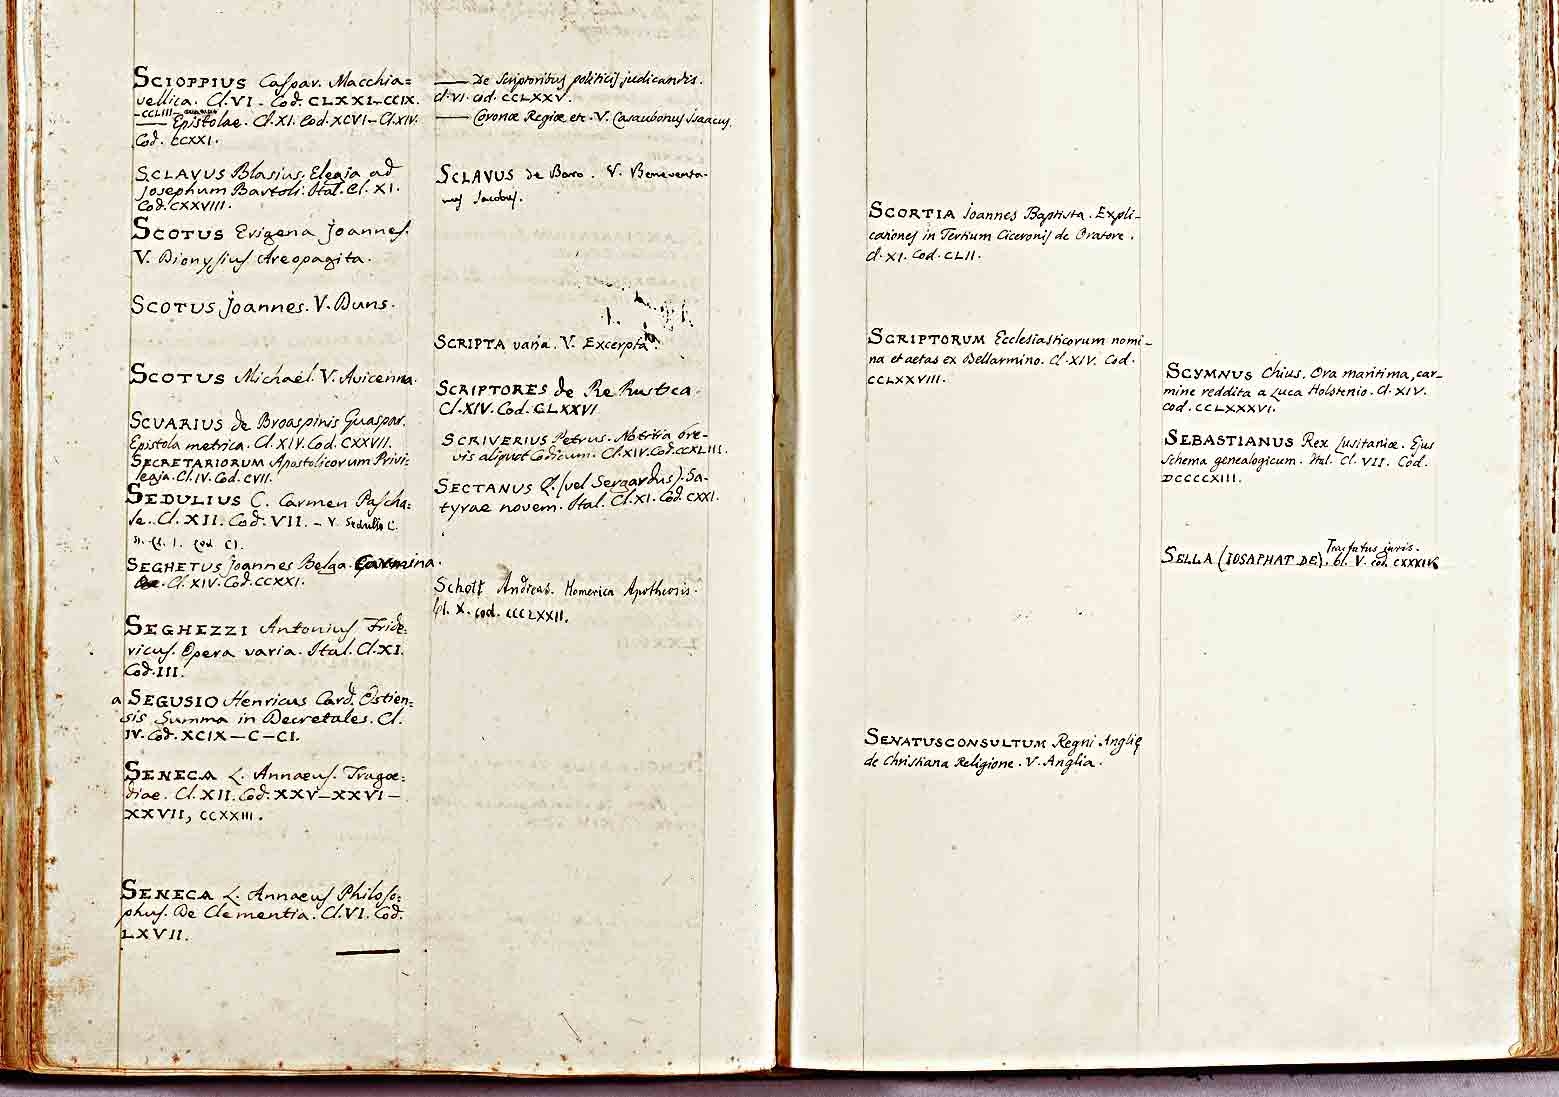 SCIOPPIUS Caspar. Macchia=
vellica. Cl. VI. Cod. CLXXI-CCIX.
-CCLIII-
—— Epistolae. Cl. XI. Cod. XCVI-Cl. XIV.
Cod. CCXXI.
SCLAVUS Blasius. Elegia ad
Josephum Bartoli. Ital. Cl. XI.
Cod. CXXVIII.
SCOTUS Erigena Joannes.
V. Dionysius Areopagita.
SCOTUS Joannes. V. Duns.
SCOTUS Michael. V. Avicenna.
SCUARIUS de Broaspinis Guaspar.
Epistola metrica. Cl. XIV. Cod. CXXVII.
SECRETARIORUM Apostolicorum Privi=
legia. Cl. IV. Cod. CVII.
SEDULIUS C. Carmen Pascha=
le. Cl. XII. Cod. VII. - V. Sedulio C.
Cl. I. Cod. CI.
SEGHETUS Joannes Belga. Carmina.
Cl. XIV. Cod. CCXXI.
SEGHEZZI Antonius Fride=
ricus. Opera varia. Ital. Cl. XI.
Cod. III.
a SEGUSIO Henricus Card. Ostien=
sis Summa in Decretales. Cl.
IV. Cod. XCIX-C-CI.
SENECA L. Annaeus. Tragoe=
diae. Cl. XII. Cod. XXV-XXVI-
XXVII, CCXXIII.
SENECA L. Annaeus Philoso=
phus. De Clementia. Cl. VI. Cod.
LXVII.
—— De Scriptoribus politicis judicandis.
Cl. VI. Cod. CCLXXV.
—— Coronae Regiae etc. V. Casaubonus Isaacus.
SCLAVUS de Baro. V. Beneventa-
nus Jacobus.
SCRIPTA varia. V. Excerpta.
SCRIPTORES de Re Rustica.
Cl. XIV. Cod. CLXXVI
SCRIVERIUS Petrus. Notitia bre-
vis aliquot Codicum. Cl. XIV. Cod. CCXLIII.
SECTANUS Q. (vel Sergardus). Sa-
tyrae novem. Ital. Cl. XI. Cod. CXXI.
Schott Andreas. Homerica Apotheosis.
Cl. X. cod. CCCLXXII.
SCORTIA Joannes Baptista. Expli-
cationes in Tertium Ciceronis de Oratore.
Cl. XI. Cod. CLII.
SCRIPTORUM Ecclesiasticorum nomi-
na et aetas ex Bellarmino. Cl. XIV. Cod.
CCLXXVIII.
SENATUSCONSULTUM Regni Anglię
de Christiana Religione. V. Anglia.
SCYMNUS Chius. Ora maritima, car-
mine reddita a Luca Holstenio. Cl. XIV.
Cod. CCLXXXVI.
SEBASTIANUS Rex Lusitaniae. Ejus
Schema genealogicum. Ital. Cl. VII. Cod.
DCCCCXIII.
Tractatus juris.
SELLA (IOSAPHAT DE). Cl. V. cod. CXXXIV.